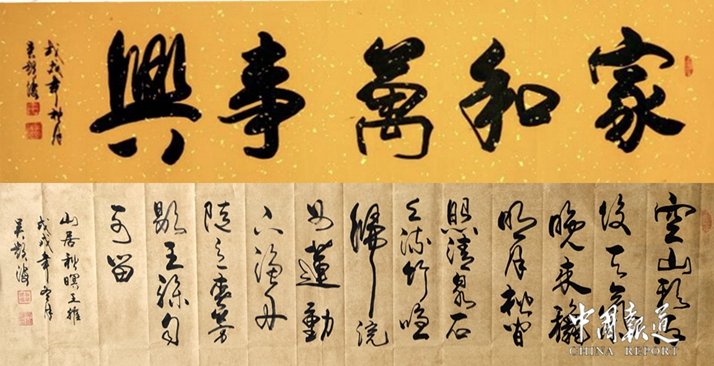 家和萬事興
戊戌年秋月
空山新雨
後天氣
晚來穐
明月松間
照清泉石
上流竹喧
歸浣
女蓮動
下漁舟
隨意春芳
歇王孫自
可留
山居秋暝王維
戊戌年冬月
中國報道
CHINA REPORT